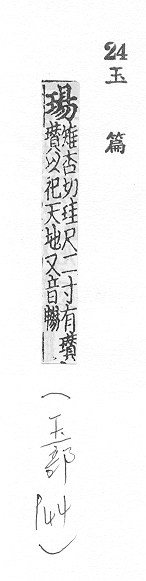 24 玉篇
瑒
雉杏切珪尺二寸有瓚
瓚以祀天地又音暢
(玉部144)